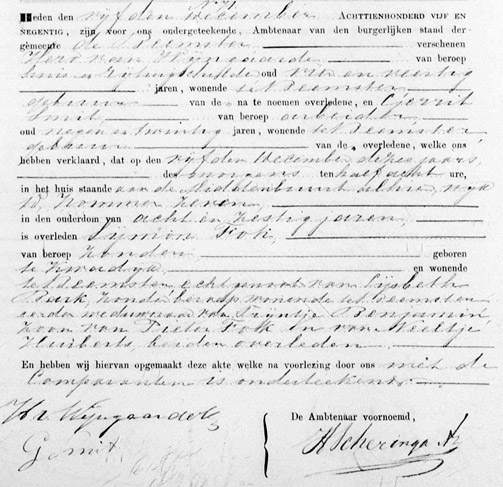 No 71
Heden den vijfden December ACHTTIENHONDERD VIJF EN
NEGENTIG, zijn voor ons ondergeteekende, Ambtenaar van den burgerlijken stand der
gemeente de Beemster verschenen
van Wijngaarde van beroep
oud en veertig
jaren, wonende te Beemster
gebuur van de na te noemen overledene, en Gerrit
Smit, van beroep arbeider
oud negen en twintig jaren, wonende te Beemster
gebuur van de overledene, welke ons
hebben verklaard, dat op den vijfden December dezes jaars,
des morgens ten half acht ure,
in het huis staande aan de Middenbuurt alhier, wijk
nommer zeven,
in den ouderdom van acht en zestig jaren,
is overleden Sijmon Fok,
van beroep zonder, geboren
te Zwaagdijk en wonende
te Beemster echtgenoot van Lijsbeth
zonder beroep wonende te Beemster
eerder weduwnaar van Trijntje Benjamin,
zoon van Pieter Fok en van Neeltje
Huiberts, beiden overleden.
En hebben wij hiervan opgemaakt deze akte welke na voorlezing door ons met de
Comparanten is onderteekend.
H v Wijngaarde
G Smit
De Ambtenaar voornoemd,
H Scheringa